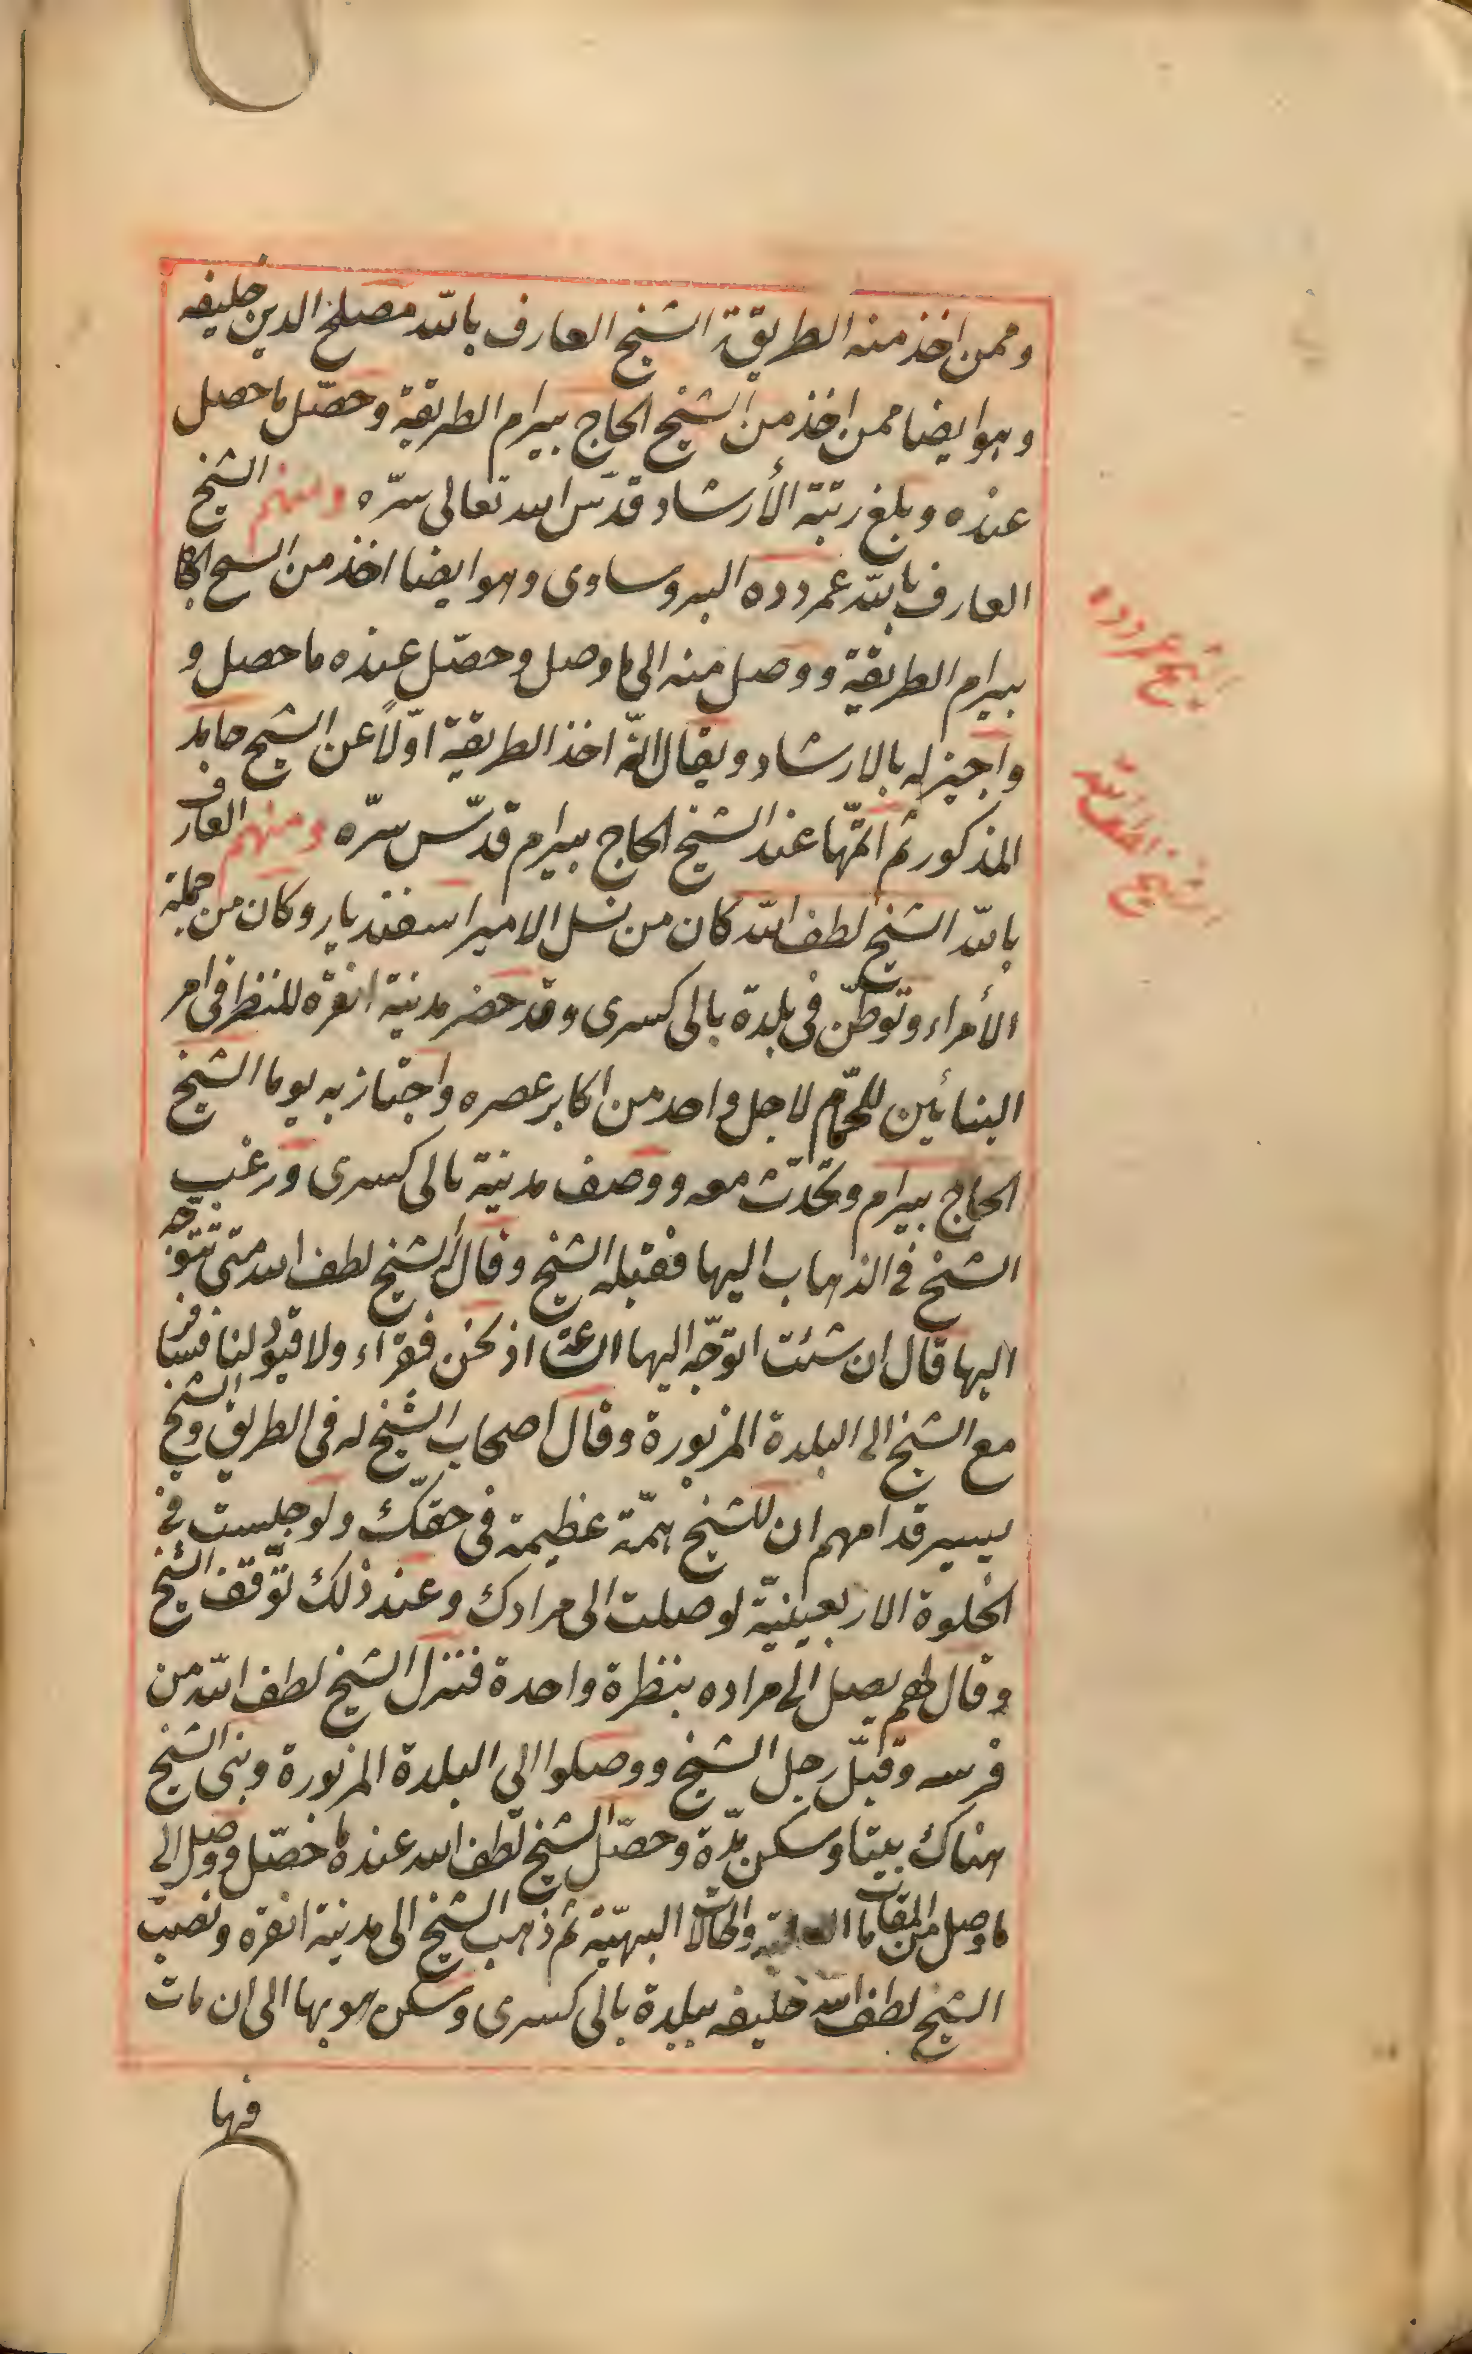 وممن اخذ منه الطريقة الشيخ العارف بالله مصلح الدين خليفه
وهو ايضا ممن اخذ من الشيخ الحاج بيرام الطريقة وحصّل ما حصل
عنده وبلغ رتبة الأرشاد قدّس الله تعالى سرّه ومنهم الشيخ
العارف بالله عمر دده البروساوى وهو ايضا اخذ من الشيخ الحاج
بيرام الطريقة ووصل منه الى ما وصل وحصّل عنده ما حصل و
واجيز له بالارشاد ويقال انّه اخذ الطريقة اوّلاً عن الشيخ حامد
المذكور ثم اتمّها عند الشيخ الحاج بيرام قدّس سرّه ومنهم العارف
بالله الشيخ لطف الله كان من نسل الامير اسفنديار وكان من جملة
الأمراء وتوطّن فى بلدة بالى كسرى وقد حضر مدينة انقره للنظر فى امر
البنائين للحمّام لاجل واحد من اكابر عصره واجتاز به يوما الشيخ
الحاج بيرام وتحدّث معه ووصف مدينة بالى كسرى ورغب
الشيخ فى الذهاب اليها فقبله الشيخ وقال الشيخ لطف الله متى تتوجّه
اليها قال ان شئت اتوجّه اليها الساعة اذ نحن فقراء ولا قيود لنا فسافر
مع الشيخ الى البلدة المزبورة وقال اصحاب الشيخ له فى الطريق والشيخ
يسير قدامهم ان للشيخ همّة عظيمة فى حقّك ولو جلست فى
الخلوة الاربعينيّة لوصلت الى مرادك وعند ذلك توقّف الشيخ
وقال لهم يصل الى مراده بنظرة واحدة فنزل الشيخ لطف الله من
فرسه وقبّل رجل الشيخ ووصلوا الى البلدة المزبورة وبنى الشيخ
هناك بيتا وسكن مدّة وحصّل الشيخ لطف الله عنده ما حصّل ووصل الى
ما وصل من المقامات والحالات البهيّة ثم ذهب الشيخ الى مدينة انقره ونصب
الشيخ لطف الله خليفه ببلدة بالى كسرى وسكن هو بها الى ان مات
فيها
الشيخ عمر دده
الشيخ لطف الله